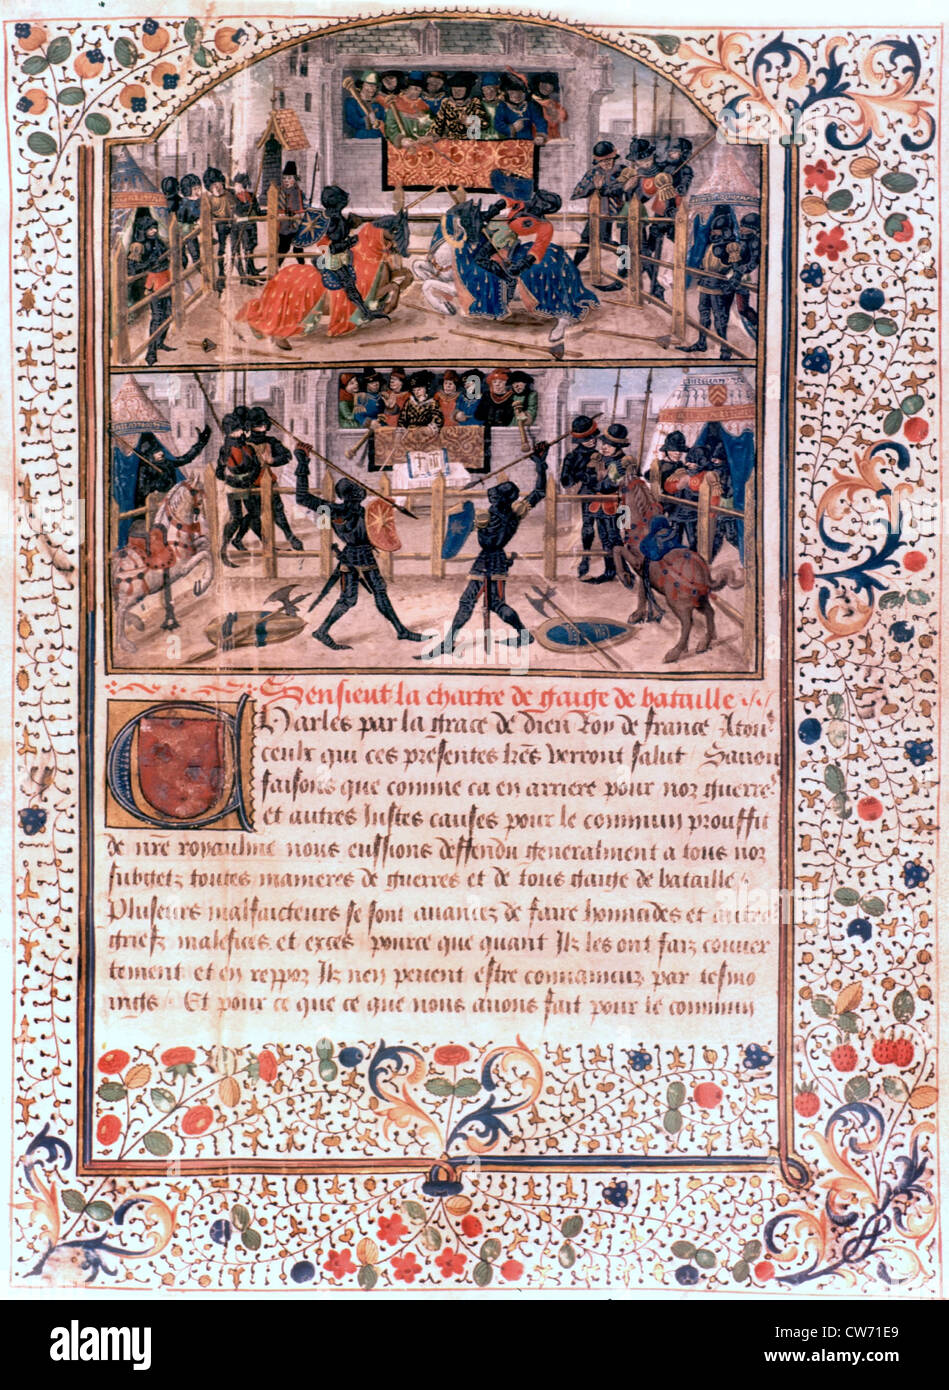 Sensieut la chartre de gaige de bataille
Charles par la grace de dieu Roy de france A tous
ceulx qui ces presentes lres verront salut / Sauoir
faisons que comme ca en arriere pour noz guerres
et autres Justes causes pour le commun prouffit
de nre royaulme nous eussions deffendu generalment a tous noz
subgetz toutes manieres de guerres et de tous gaige de bataille /
Plusieurs malfaicteurs se sont auancez de faire homicides et autres
griefz malefices et exces pource que quant Ilz les ont faiz couuer
tement et en reppoz Ilz nen peuent estre conuaincuz par tesmo
ings / Et pour ce que ce que nous auons fait pour le commun
alamy
Image ID: CW71E9
www.alamy.com